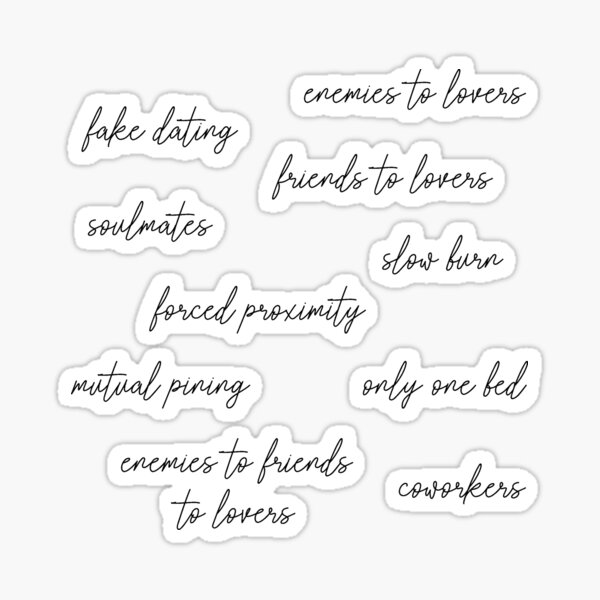 enemies to lovers
fake dating
friends to lovers
soulmates
slow burn
forced proximity
mutual pining
only one bed
enemies to friends
to lovers
coworkers